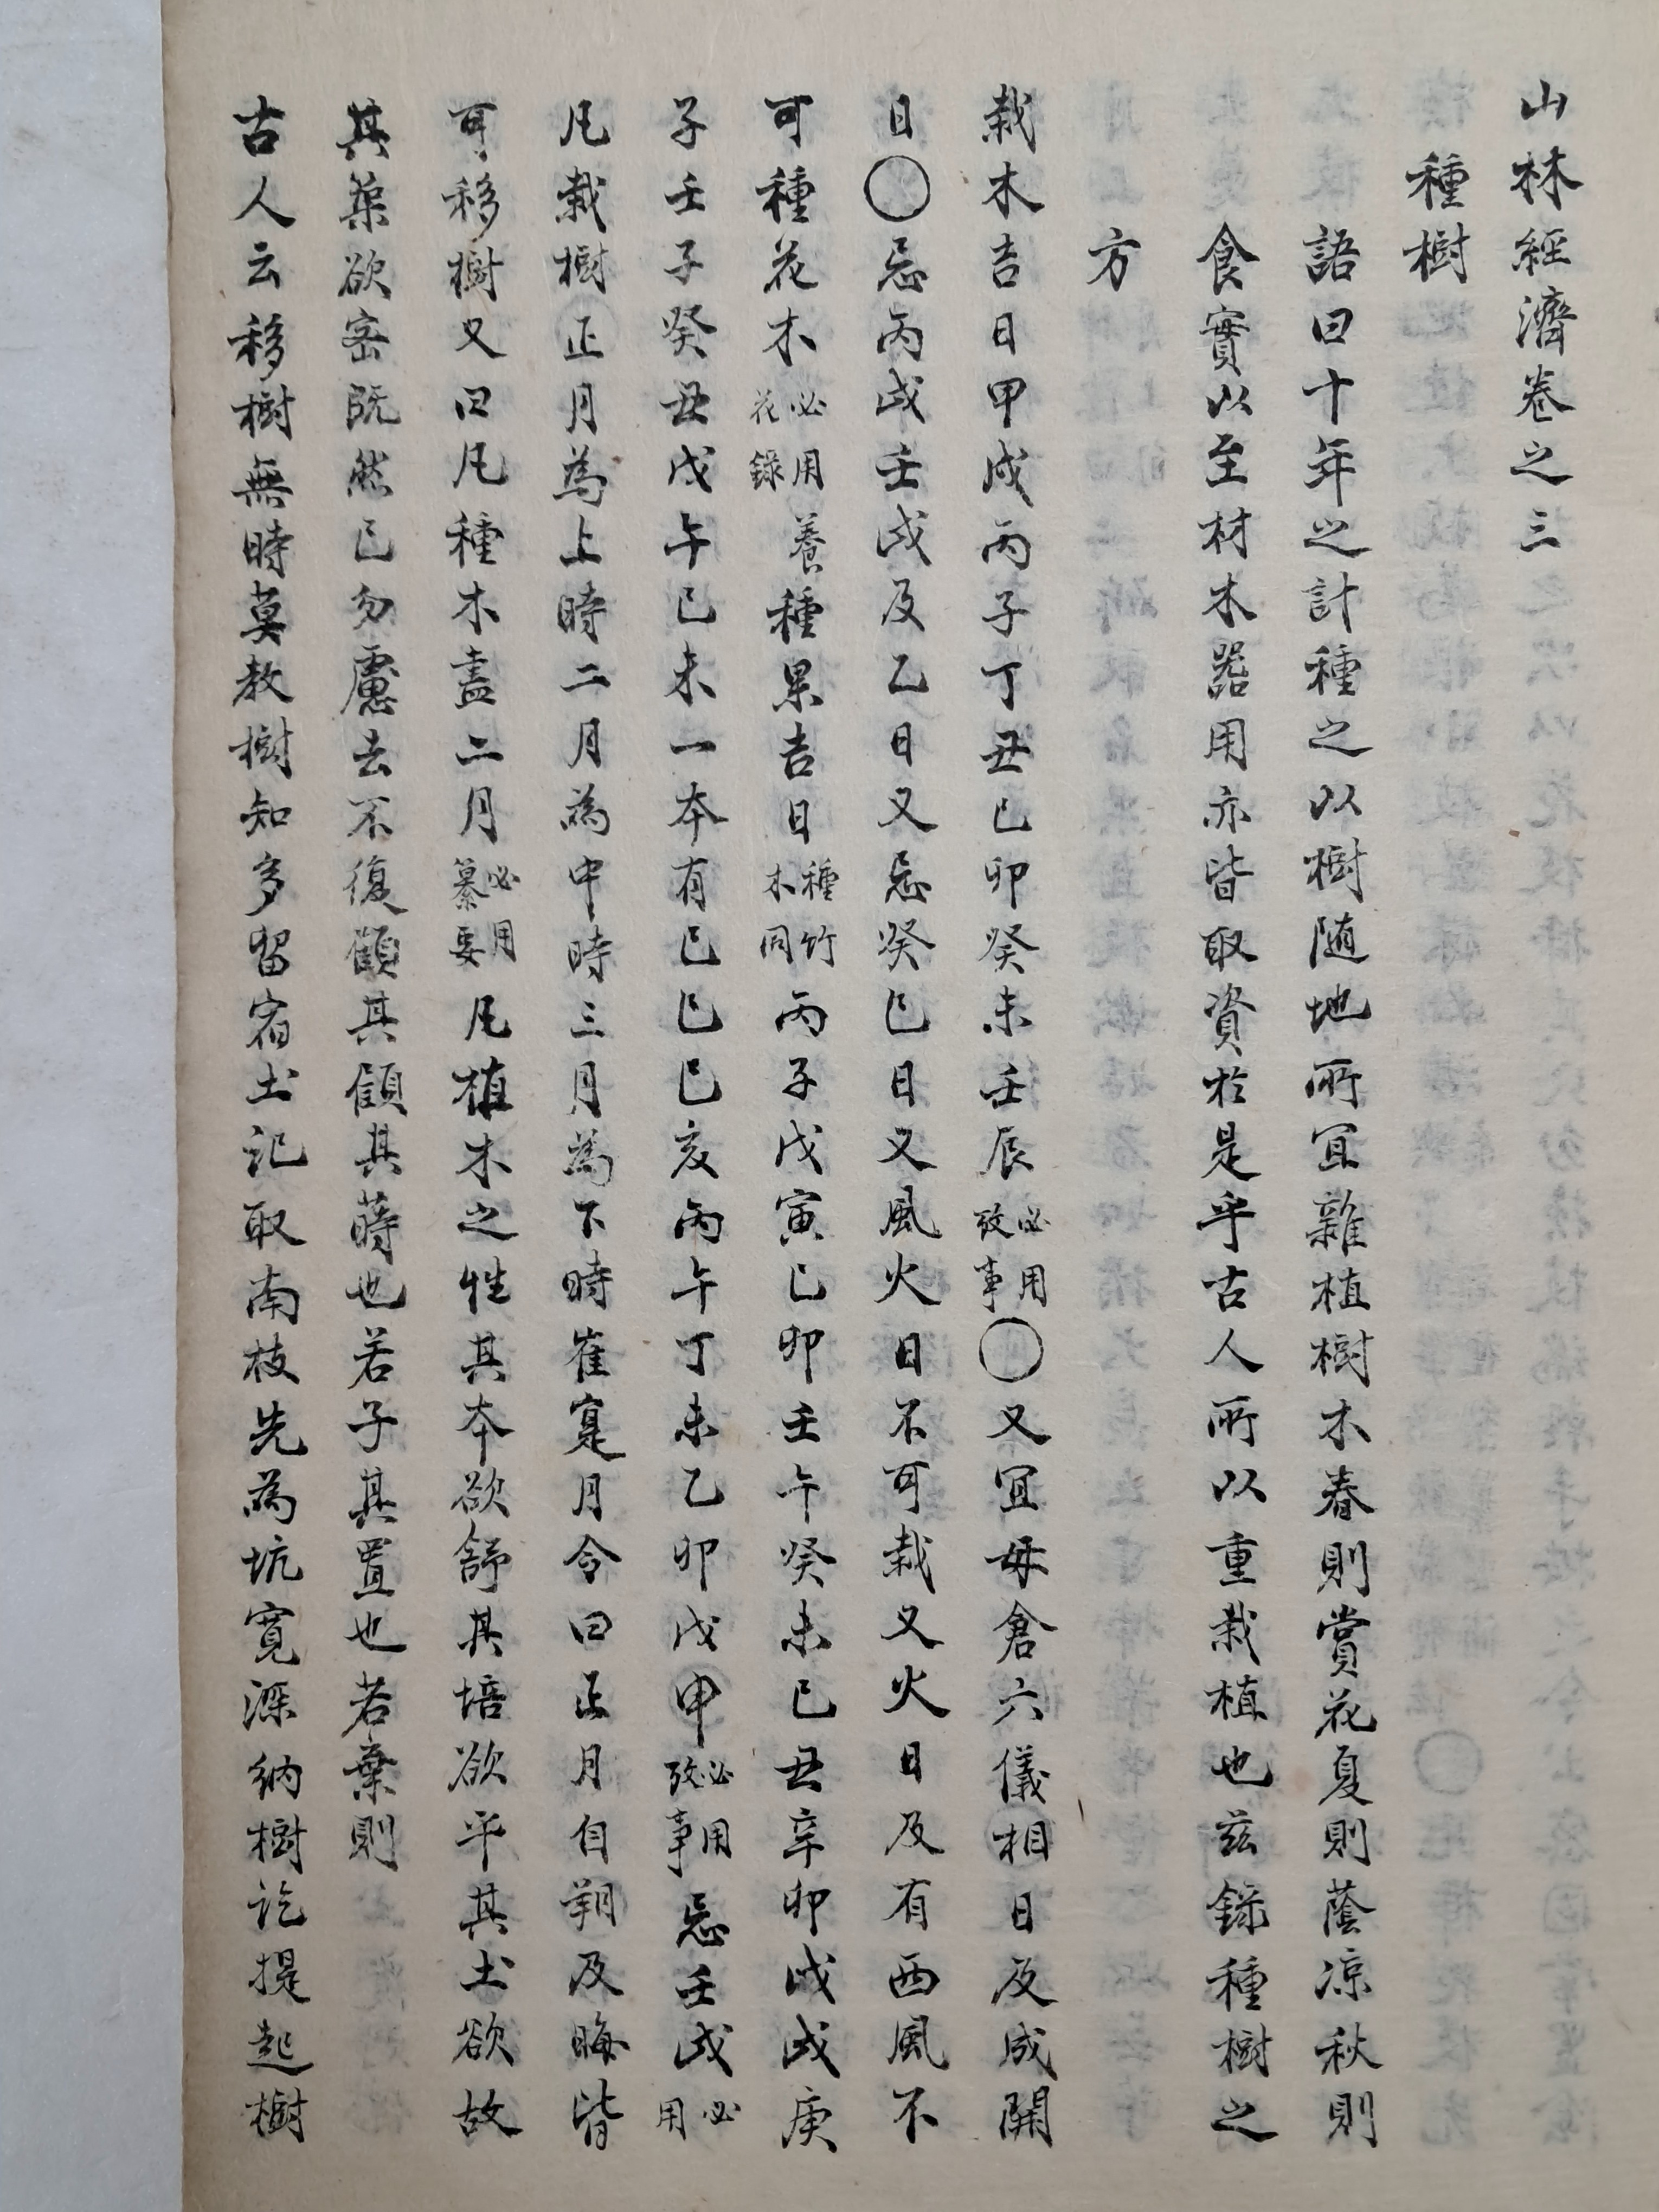 山林經濟卷之三
種樹
語曰十年之計種之以樹随地所宜雜植樹木春則賞花夏則蔭凉秋則
食實以至材木器用亦皆取資於是乎古人所以重栽植也茲錄種樹之
方
栽木吉日甲戌丙子丁丑己卯癸未壬辰必用攷事〇又宜母倉六儀相日及成開
日〇忌丙戌壬戌及乙日又忌癸巳日又風火日不可栽又火日及有西風不
可種花木必用花錄養種果吉日種竹木同丙子戊寅己卯壬午癸未己丑辛卯戊戌庚
子壬子癸丑戊午己未一本有己巳己亥丙午丁未乙卯戊申必用攷事忌壬戌必用
凡栽樹正月為上時二月為中時三月為下時崔寔月令曰正月自朔及晦皆
可移樹又曰凡種木盡二月必用纂要凡植木之性其本欲舒其培欲平其土欲故
其築欲密既然已勿慮去不復顧其顧其蒔也若子其置也若棄則
古人云移樹無時莫教樹知多留宿土記取南枝先為坑寬深納樹訖提起樹